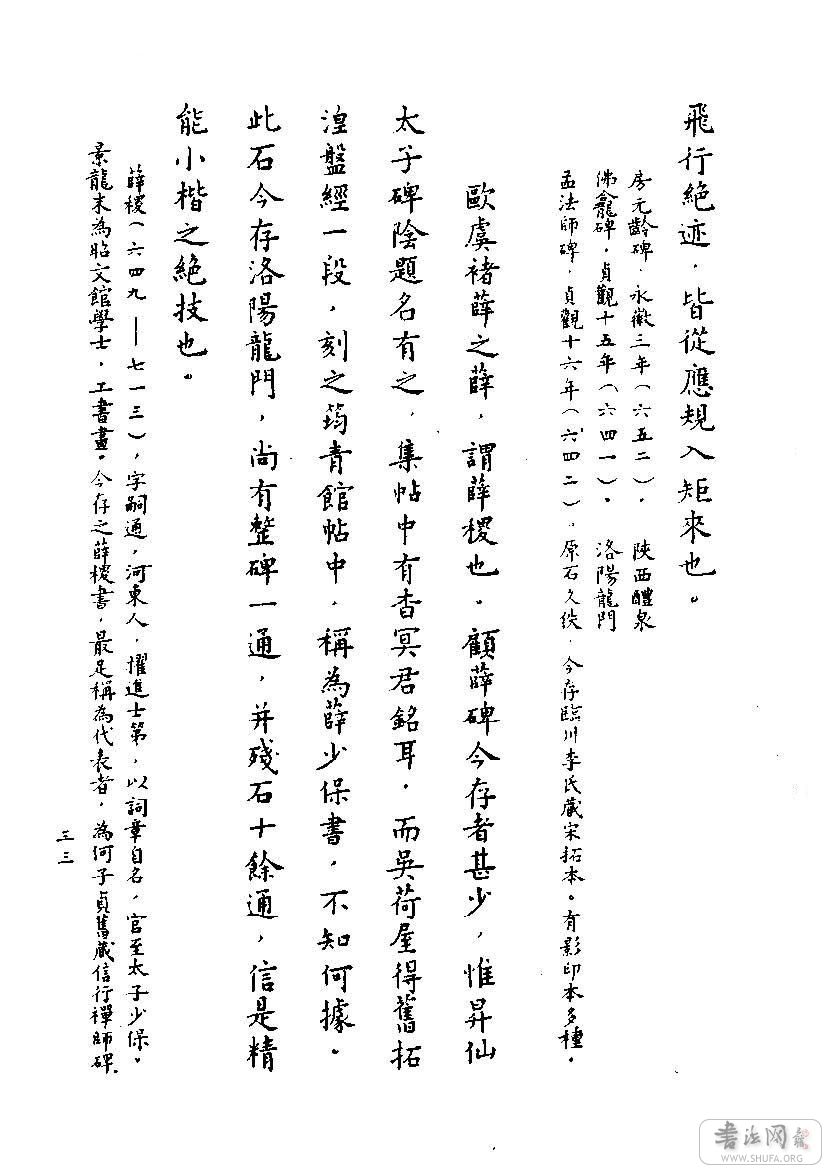 飛行絶迹．皆從應規入矩來也。
房元齡碑．永徽三年（六五二）． 陝西醴泉
佛龕碑．貞觀十五年（六四一）． 洛陽龍門
孟法師碑．貞觀十六年（六四二）．原石久佚．今存臨川李氏藏宋拓本。有影印本多種。
歐虞褚薛之薛，謂薛稷也．顧薛碑今存者甚少，惟昇仙
太子碑陰題名有之．集帖中有杳冥君銘耳．而吳荷屋得舊拓
湼盤經一段，刻之筠青館帖中．稱為薛少保書，不知何據．
此石今存洛陽龍門，尚有整碑一通，并殘石十餘通，信是精
能小楷之絶技也。
薛稷（六四九——七一三），字嗣通，河東人，擢進士第，以詞章自名，官至太子少保。
景龍末為昭文館學士，工書畫。今存之薛稷書，最足稱為代表者，為何子貞舊藏信行禪師碑．
三三
書法网
WWW.SHUFA.ORG